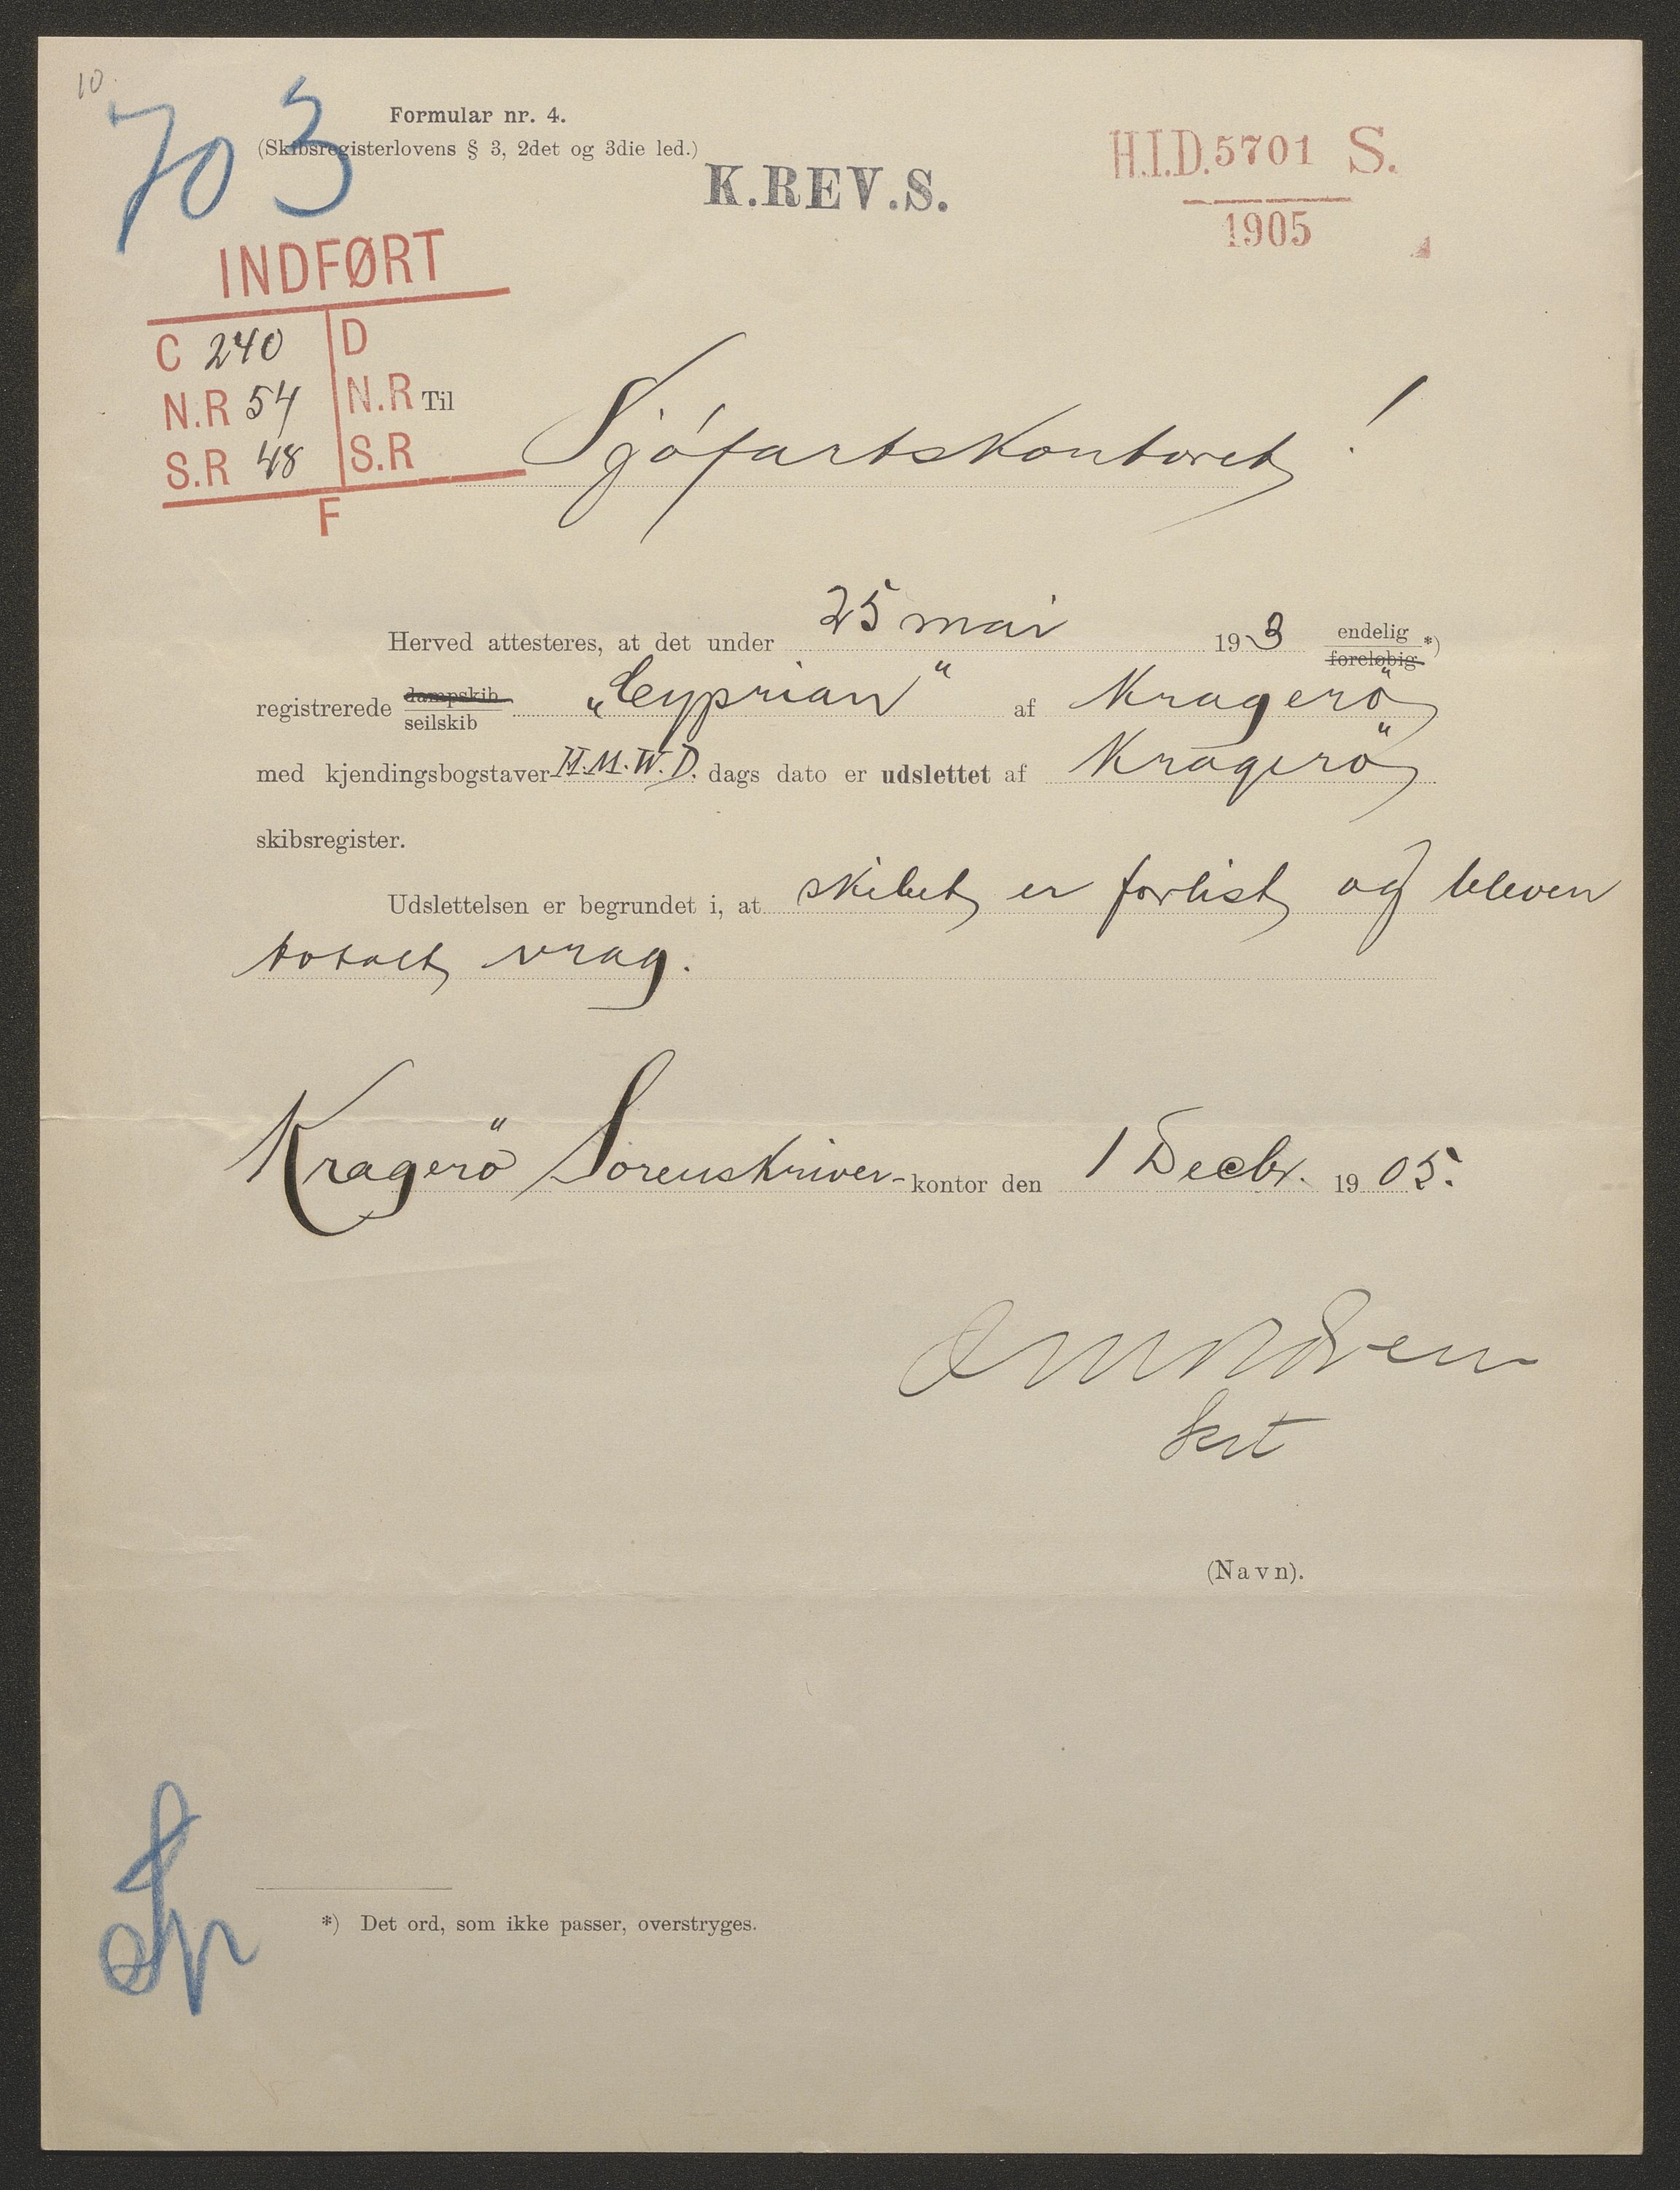 10.
703
Formular nr. 4.
(Skibsregisterlovens § 3, 2det og 3die led.)
K.REV.S.
H.I.D. 5701 S.
1905
INDFØRT
C 240 D
N.R 54 N.R
S.R 48 S.R
F
Til Sjøfartskontoret!
Herved attesteres, at det under 25 mai 1903 endelig *)
foreløbig
registrerede dampskib
seilskib „Cyprian" af Kragerö
med kjendingsbogstaver H.M.W.D. dags dato er udslettet af Kragerö
skibsregister.
Udslettelsen er begrundet i, at skibet er forlist og bleven
totalt vrag.
Kragerö Sorenskriver-kontor den 1 Decbr. 1905.
(Navn).
*) Det ord, som ikke passer, overstryges.